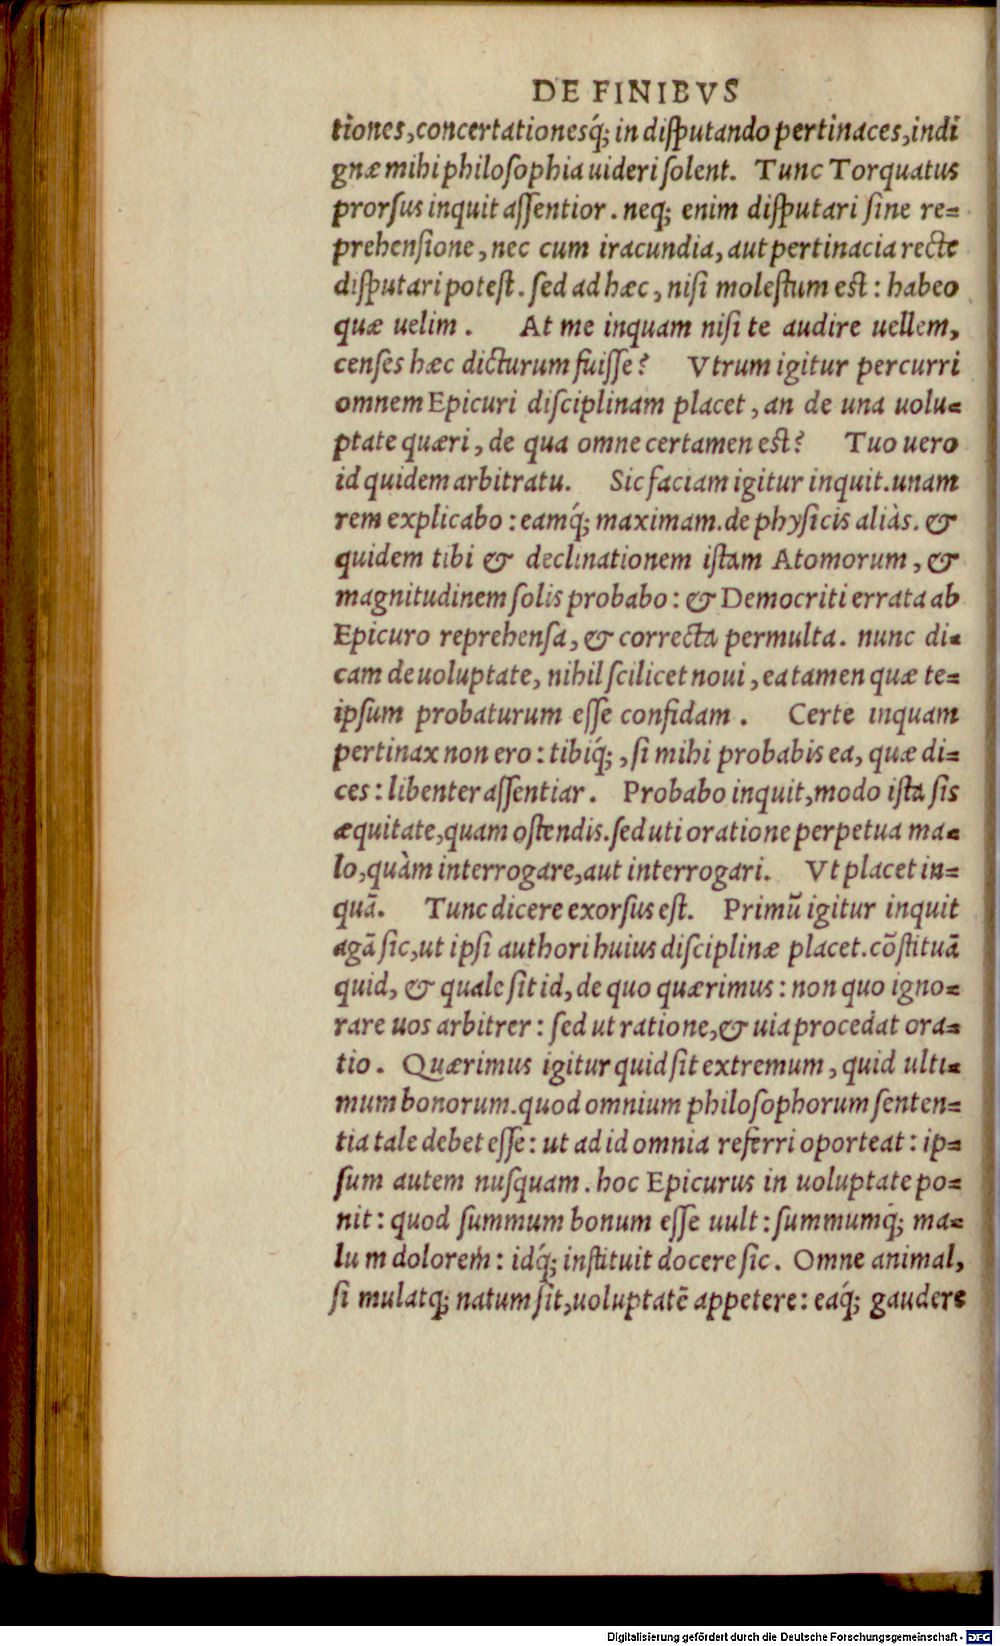 DE FINIBVS
tiones,concertationesq́; in disputando pertinaces,indi
gnæ mihi philosophia uideri solent. Tunc Torquatus
prorsus inquit assentior. neq; enim disputari sine re=
prehensione, nec cum iracundia, aut pertinacia recte
disputari potest. sed ad hæc, nisi molestum est: habeo
quæ uelim. At me inquam nisi te audire uellem,
censes hæc dicturum fuisse? Vtrum igitur percurri
omnem Epicuri disciplinam placet, an de una uolu=
ptate quæri, de qua omne certamen est? Tuo uero
id quidem arbitratu. Sic faciam igitur inquit.unam
rem explicabo: eamq́; maximam.de physicis aliàs. &
quidem tibi & declinationem istam Atomorum, &
magnitudinem solis probabo: & Democriti errata ab
Epicuro reprehensa, & correcta permulta. nunc di=
cam de uoluptate, nihil scilicet noui, ea tamen quæ te=
ipsum probaturum esse confidam. Certe inquam
pertinax non ero: tibiq́;, si mihi probabis ea, quæ di=
ces: libenter assentiar. Probabo inquit,modo ista sis
æquitate,quam ostendis.sed uti oratione perpetua ma=
lo,quàm interrogare,aut interrogari. Vt placet in=
quā. Tunc dicere exorsus est. Primū igitur inquit
agā sic,ut ipsi authori huius disciplinæ placet.cōstituā
quid, & quale sit id, de quo quærimus: non quo igno=
rare uos arbitrer: sed ut ratione,& uia procedat ora=
tio. Quærimus igitur quid sit extremum, quid ulti=
mum bonorum.quod omnium philosophorum senten=
tia tale debet esse: ut ad id omnia referri oporteat: ip=
sum autem nusquam. hoc Epicurus in uoluptate po=
nit: quod summum bonum esse uult: summumq́; ma=
lu m dolorem: idq́; instituit docere sic. Omne animal,
si mulatq; natum sit,uoluptatē appetere: eaq́; gaudere
Digitalisierung gefördert durch die Deutsche Forschungsgemeinschaft - DFG